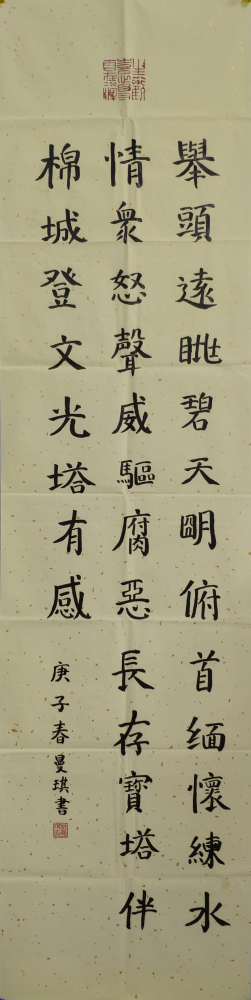 舉頭遠眺碧天明俯首緬懷練水
情衆怒聲威驅腐惡長存寶塔伴
棉城登文光塔有感
庚子春曼琪書